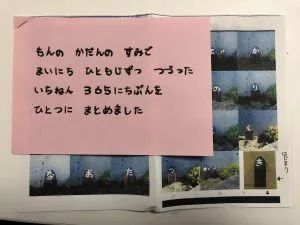 もんの かだんの すみで
まいにち ひともじずつ つづった
いちねん 365にちぶんを
ひとつに まとめました
か
の り
く
な お た
つ か っ
き